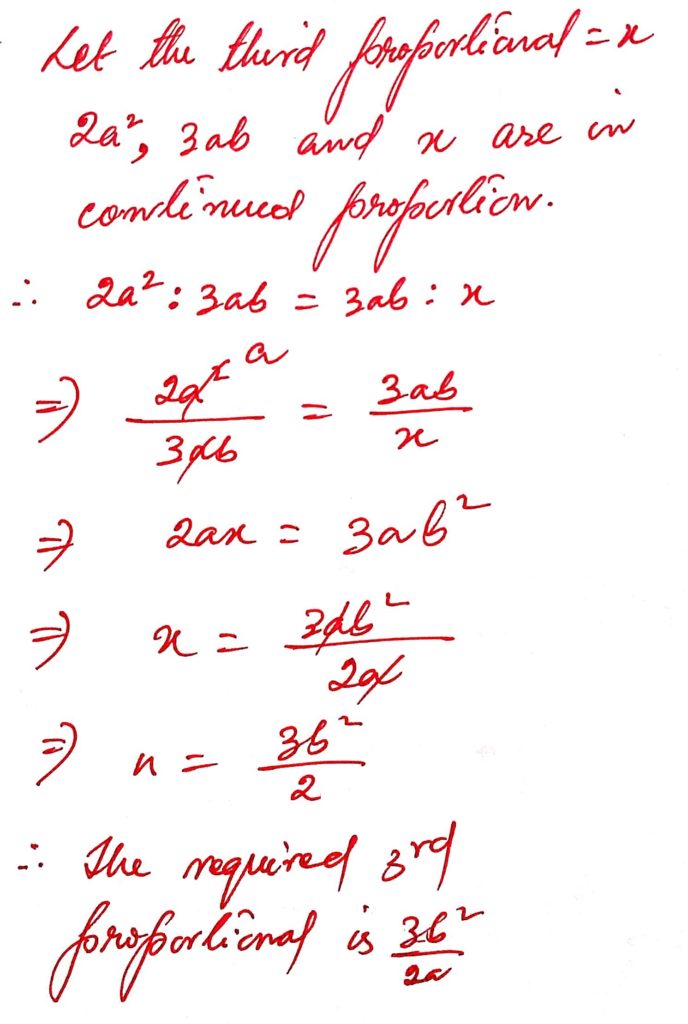 Let the third proportional = x
2a², 3ab and x are in
continued proportion.
∴ 2a² : 3ab = 3ab : x
⇒ 2a² a / 3ab = 3ab / x
⇒ 2ax = 3ab²
⇒ x = 3ab² / 2a
⇒ x = 3b² / 2
∴ The required 3rd
proportional is 3b² / 2a